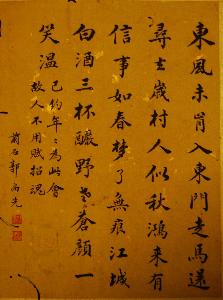 東風未肯入東門走馬還
尋去歲村人似秋鴻来有
信事如春夢了無痕江城
白酒三杯釅野老蒼顔一
笑温已約年〻為此會
故人不用賦招魂
蘭石郭尚先